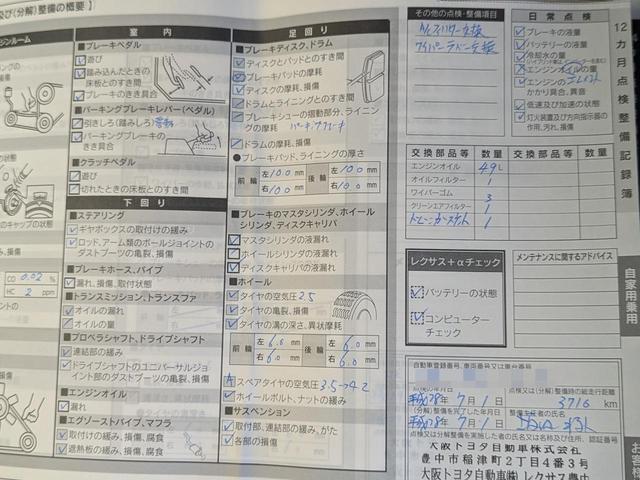 及び(分解)整備の概要】
ンジンルーム
CO 0.02 %
HC 2 ppm
室内
■ブレーキペダル
遊び
踏み込んだときの
床板とのすき間
ブレーキのきき具合
■パーキングブレーキレバー(ペダル)
引きしろ(踏みしろ)
パーキングブレーキの
きき具合
■クラッチペダル
遊び
切れたときの床板とのすき間
下回り
■ステアリング
ギヤボックスの取付けの緩み
ロッド、アーム類のボールジョイントの
ダストブーツの亀裂、損傷
■ブレーキホース、パイプ
漏れ、損傷、取付状態
■トランスミッション、トランスファ
オイルの漏れ
オイルの量
■プロペラシャフト、ドライブシャフト
連結部の緩み
ドライブシャフトのユニバーサルジョ
イント部のダストブーツの亀裂、損傷
■エンジンオイル
漏れ
■エグゾーストパイプ、マフラ
取付けの緩み、損傷、腐食
遮熱板の緩み、損傷、腐食
足回り
■ブレーキディスク、ドラム
ディスクとパッドとのすき間
ブレーキパッドの摩耗
ディスクの摩耗、損傷
ドラムとライニングとのすき間
ブレーキシューの摺動部分、ライニン
グの摩耗
ドラムの摩耗、損傷
●ブレーキパッド、ライニングの厚さ
前輪 左 10.0 mm 後輪 左 10.0 mm
右 10.0 mm 右 10.0 mm
■ブレーキのマスタシリンダ、ホイール
シリンダ、ディスクキャリパ
マスタシリンダの液漏れ
ホイールシリンダの液漏れ
ディスクキャリパの液漏れ
■ホイール
タイヤの空気圧 2.5
タイヤの亀裂、損傷
タイヤの溝の深さ、異状摩耗
前輪 左 6.0 mm 後輪 左 6.0 mm
右 6.0 mm 右 6.0 mm
スペアタイヤの空気圧 3.5→4.2
ホイールボルト、ナットの緩み
■サスペンション
取付部、連結部の緩み、がた
各部の損傷
その他の点検・整備項目
日常点検
ブレーキの液量
バッテリーの液量
冷却水の量
エンジンオイルの量
エンジンの
かかり具合、異音
低速及び加速の状態
灯火装置及び方向指示器の
作用、汚れ、損傷
交換部品等 数量 交換部品等 数量
エンジンオイル 4.9L
オイルフィルター 1
ワイパーゴム 3
クリーンエアフィルター 1
1
レクサス+αチェック
バッテリーの状態
コンピューター
チェック
メンテナンスに関するアドバイス
自動車登録番号、車両番号又は車台番号
点検の年月日
平成28年7月1日
点検又は(分解)整備時の総走行距離
3716 km
(分解)整備を完了した年月日
平成28年7月1日
整備主任者の氏名
点検又は分解整備を実施した者の氏名又は名称及び住所、認証番号
大阪トヨタ自動車株式会社
豊中市稲津町2丁目4番3号
大阪トヨタ自動車㈱ レクサス豊中
12カ月点検整備記録簿
自家用乗用
お客様